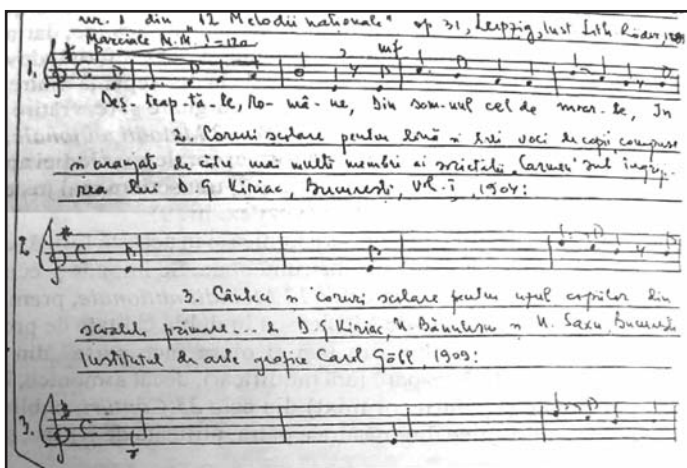 nr. 1 din "12 Melodii naționale" op 31, Leipzig, Inst Lith Röder, 1891
Marciale M.M. = 120
p mf
1.
Deș-teap-tă-te, Ro-mâ-ne, din som-nul cel de moar-te, În
2. Coruri școlare pentru două și trei voci de copii compuse
și aranjate de către mai mulți membri ai societății "Carmen" sub îngrij-
irea lui D. G Kiriac, București, vol. I, 1904:
2.
3. Cântece și coruri școlare pentru uzul copiilor din
școalele primare de D. G Kiriac, N. Bănulescu și N. Saxu, București
Institutul de arte grafice Carol Göbl, 1909:
3.